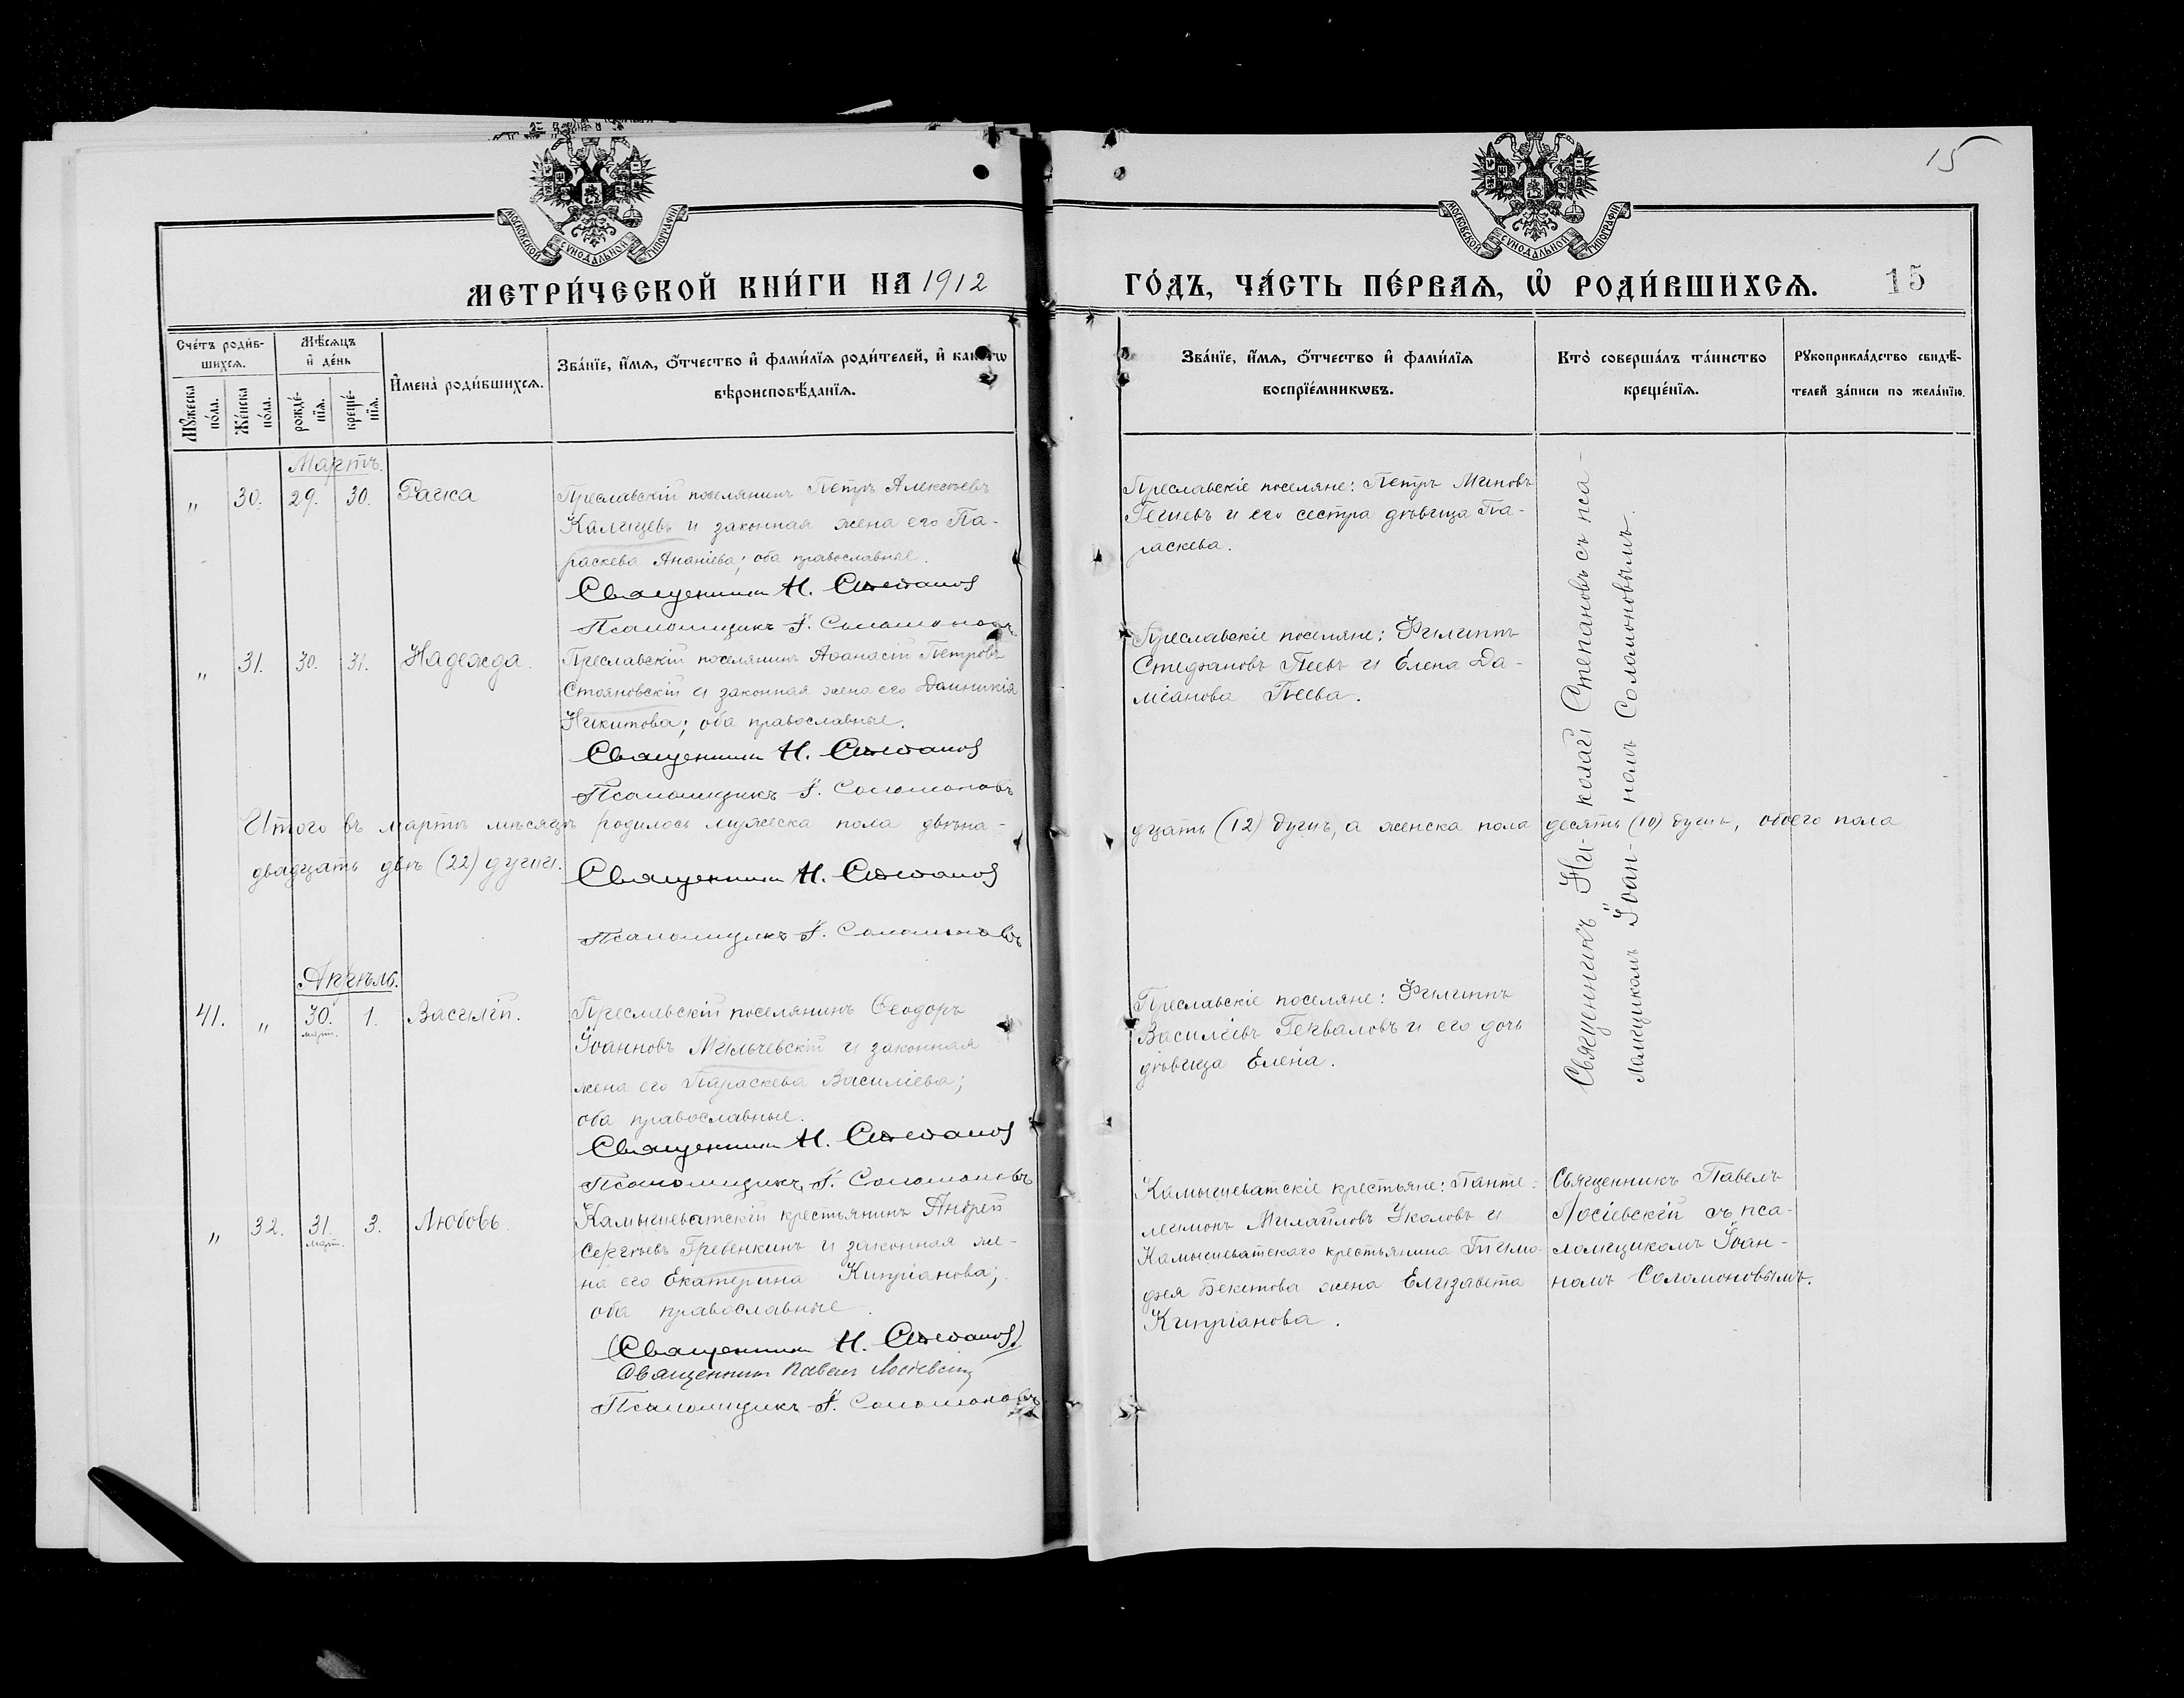 15
МОСКОВСКОЙ СѴНОДАЛЬНОЙ ТИПОГРАФІИ
МОСКОВСКОЙ СѴНОДАЛЬНОЙ ТИПОГРАФІИ
МЕТРИ́ЧЕСКОЙ КНИ́ГИ НА 1912
ГО́ДЪ, ЧА́СТЬ ПЕ́РВАЯ, Ѡ҆ РОДИ́ВШИХСЯ. 15
Сче́тъ роди́в-
шихся.
Мѣ́сяцъ
и҆ де́нь
Мꙋ́жеска
по́ла.
Же́нска
по́ла.
рожде́-
нїя.
креще́-
нїя.
И҆мена̀ роди́вшихся.
Зва́нїе, и҆́мя, ѻ҆́тчество и҆ фами́лїя роди́телей, и҆ како́гѡ
вѣроисповѣ́данїя.
Зва́нїе, и҆́мя, ѻ҆́тчество и҆ фами́лїя
воспрїе́мникѡвъ.
Кто̀ соверша́лъ та́инство
креще́нїя.
Рꙋкоприкла́дство свидѣ́-
телей за́писи по жела́нїю.
Мартъ.
" 30. 29. 30. Рачка
Преславскій поселянинъ Петръ Алексѣевъ
Калицевъ и законная жена его Па-
раскева Ананіева; оба православные.
Священникъ Н. Степановъ
Псаломщикъ І. Соломоновъ
Преславскіе поселяне: Петръ Миновъ
и его сестра дѣвица Па-
раскева.
" 31. 30. 31. Надежда.
Преславскій поселянинъ Аѳанасій Петровъ
Стояновскій и законная жена его Домникія
Никитова; оба православные.
Священникъ Н. Степановъ
Псаломщикъ І. Соломоновъ
Преславскіе поселяне: Филиппъ
Стефановъ Пеевъ и Елена Да-
міанова Пеева.
Священникъ Ни-колай Степановъ съ пса-
ломщикомъ Іоан-номъ Соломоновымъ.
Итого въ мартѣ мѣсяцѣ родилось мужеска пола двѣна-
дцать (12) душъ, а женска пола десять (10) душъ, обоего пола
двадцать двѣ (22) души.
Священникъ Н. Степановъ
Псаломщикъ І. Соломоновъ
Апрѣль.
41. " 30. март. 1. Василій.
Преславскій поселянинъ Ѳеодоръ
Іоанновъ Мильчевскій и законная
жена его Параскева Василіева;
оба православные.
Священникъ Н. Степановъ
Псаломщикъ І. Соломоновъ
Преславскіе поселяне: Филиппъ
Василіевъ и его дочь
дѣвица Елена.
" 32. 31. март. 3. Любовь.
Камышеватскій крестьянинъ Андрей
Сергѣевъ Гребенкинъ и законная же-
на его Екатерина Кипріанова;
оба православные.
(Священникъ Н. Степановъ)
Священникъ Павелъ Лосіевскій
Псаломщикъ І. Соломоновъ
Камышеватскіе крестьяне: Панте-
леимонъ Михайловъ Уколовъ и
Камышеватскаго крестьянина Тимо-
фея Бекетова жена Елизавета
Кипріанова.
Священникъ Павелъ
Лосіевскій съ пса-
ломщикомъ Іоан-
номъ Соломоновымъ.